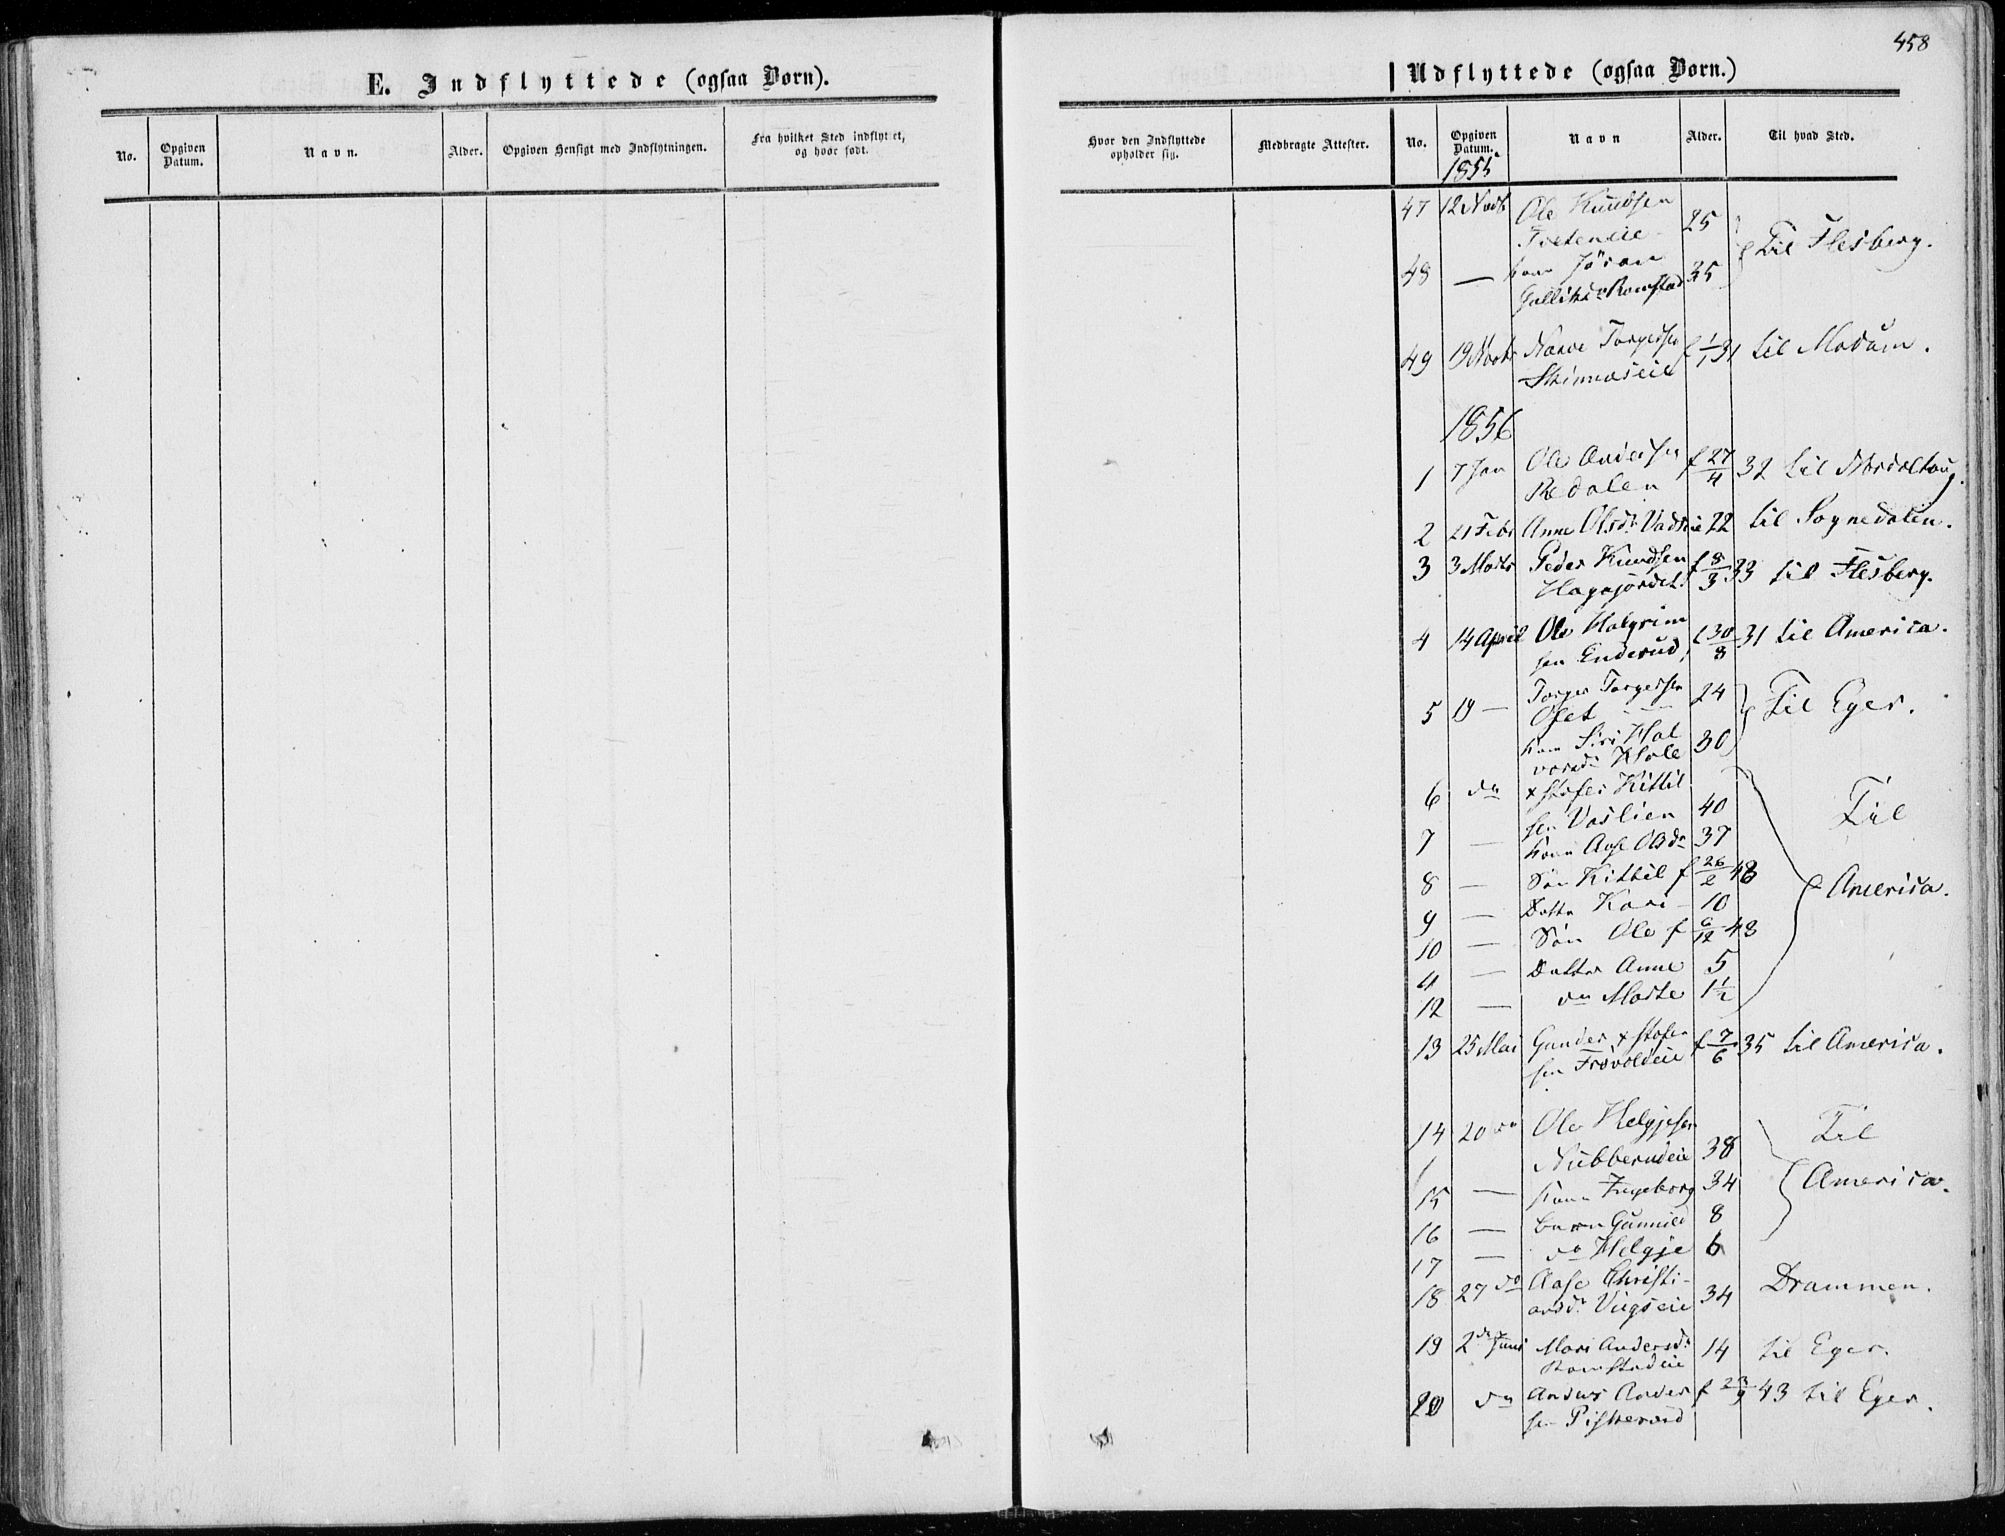 458
E. Indflyttede (ogsaa Børn).
Udflyttede (ogsaa Børn.)
No.
Opgiven Datum.
Navn.
Alder.
Opgiven Hensigt med Indflytningen.
Fra hvilket Sted indflyttet, og hvor født.
Hvor den Indflyttede opholder sig.
Medbragte Attester.
No.
Opgiven Datum.
Navn
Alder.
Til hvad Sted.
1855
47 12 Novb Ole Knudsen 25
Til Flesberg.
48 — Kone Jöran 35
Gulliksd Ramstad
49 19 Novbr Torgersen f 1/1 31 til Modum.
1856
1 7 Jan Ole Andersen f 27/4 32 til
Redalen
2 21 Febr Anne Olsdr 22 til Sognedalen.
3 3 Marts Peder Knudsen f 8/3 33 til Flesberg.
Hagajordet
4 14 April Ole Halgrim f 30/8 31 til America.
sen Enderud,
5 19 — Torger Torgersen 24
Til Eger.
Kone Siri Hal 30
vorsdr Hole
6 do xstofer Kittil
sen Vaslien 40
Til
7 — Kone Aase Olsdr 37
8 — Søn Kittil f 26/2 48
America.
9 — Datter Kari 10
10 — Søn Ole f 6/12 48
11 — Datter Anne 5
12 — do Marte 1 1/2
13 25 Mai Gunder xstofer f 7/6 35 til America.
sen Frøvoldeie
14 20 do Ole Helgjesen
Til
Nubberudeie 38
15 — Kone Ingeborg 34
America.
16 — barn Gunnild 8
17 — do Helgje 6
18 27 do Aase Christi- Drammen.
ansdr 34
19 2 Juni Mari Andersdr 14 til Eger.
Ramstadeie
20 do Anders Ander f 43 til Eger.
sen